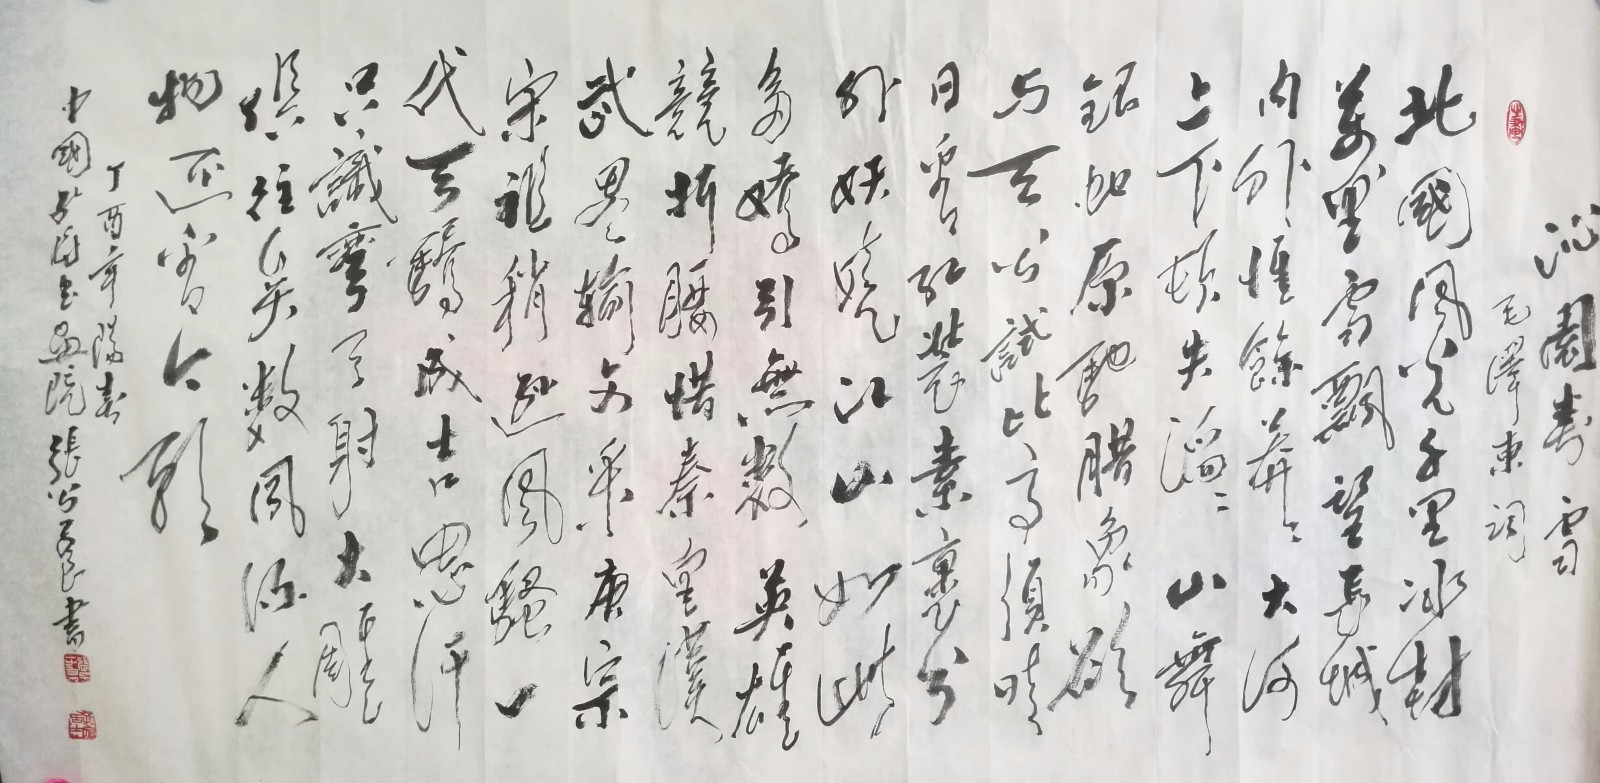 沁園春 雪
毛澤東詞
北國風光千里冰封
萬里雪飄望長城
内外惟餘莽莽大河
上下頓失滔滔山舞
銀蛇原馳腊象欲
与天公試比高須晴
日看紅裝素裹分
外妖嬈江山如此
多嬌引無數英雄
競折腰惜秦皇漢
武畧輸文采唐宗
宋祖稍遜風騷一
代天驕成吉思汗
只識彎弓射大雕
俱往矣數風流人
物还看今朝
丁酉年陽春
中國書画院張書